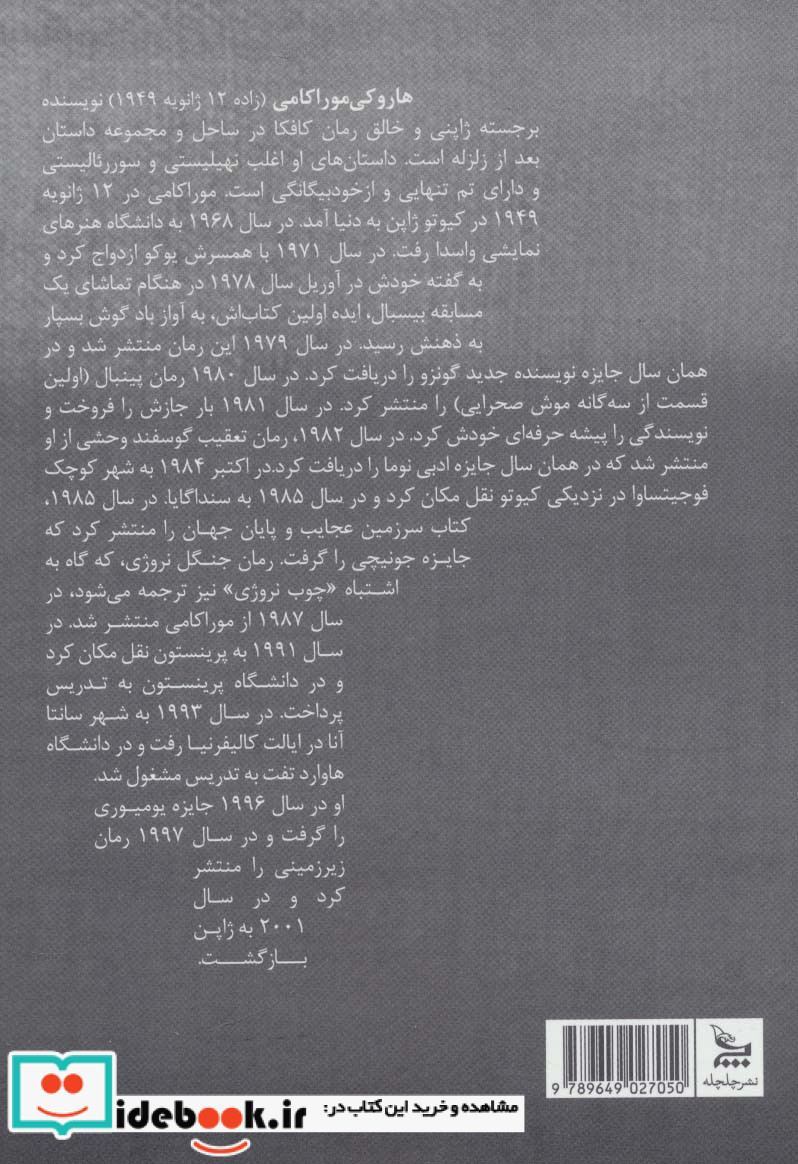 هاروکی‌موراکامی (زاده ۱۲ ژانویه ۱۹۴۹) نویسنده
برجسته ژاپنی و خالق رمان کافکا در ساحل و مجموعه داستان
بعد از زلزله است. داستان‌های او اغلب نهیلیستی و سوررئالیستی
و دارای تم تنهایی و ازخودبیگانگی است. موراکامی در ۱۲ ژانویه
۱۹۴۹ در کیوتو ژاپن به دنیا آمد. در سال ۱۹۶۸ به دانشگاه هنرهای
نمایشی واسدا رفت. در سال ۱۹۷۱ با همسرش یوکو ازدواج کرد و
به گفته خودش در آوریل سال ۱۹۷۸ در هنگام تماشای یک
مسابقه بیسبال، ایده اولین کتاب‌اش، به آواز باد گوش بسپار
به ذهنش رسید. در سال ۱۹۷۹ این رمان منتشر شد و در
همان سال جایزه نویسنده جدید گونزو را دریافت کرد. در سال ۱۹۸۰ رمان پینبال (اولین
قسمت از سه‌گانه موش صحرایی) را منتشر کرد. در سال ۱۹۸۱ بار جازش را فروخت و
نویسندگی را پیشه حرفه‌ای خودش کرد. در سال ۱۹۸۲، رمان تعقیب گوسفند وحشی از او
منتشر شد که در همان سال جایزه ادبی نوما را دریافت کرد.در اکتبر ۱۹۸۴ به شهر کوچک
فوجیتساوا در نزدیکی کیوتو نقل مکان کرد و در سال ۱۹۸۵ به سنداگایا. در سال ۱۹۸۵،
کتاب سرزمین عجایب و پایان جهان را منتشر کرد که
جایزه جونیچی را گرفت. رمان جنگل نروژی، که گاه به
اشتباه «چوب نروژی» نیز ترجمه می‌شود، در
سال ۱۹۸۷ از موراکامی منتشر شد. در
سال ۱۹۹۱ به پرینستون نقل مکان کرد
و در دانشگاه پرینستون به تدریس
پرداخت. در سال ۱۹۹۳ به شهر سانتا
آنا در ایالت کالیفرنیا رفت و در دانشگاه
هاوارد تفت به تدریس مشغول شد.
او در سال ۱۹۹۶ جایزه یومیوری
را گرفت و در سال ۱۹۹۷ رمان
زیرزمینی را منتشر
کرد و در سال
۲۰۰۱ به ژاپن
بازگشت.
نشرچلچله
9 789649 027050
مشاهده و خرید این کتاب در:
idebook.ir